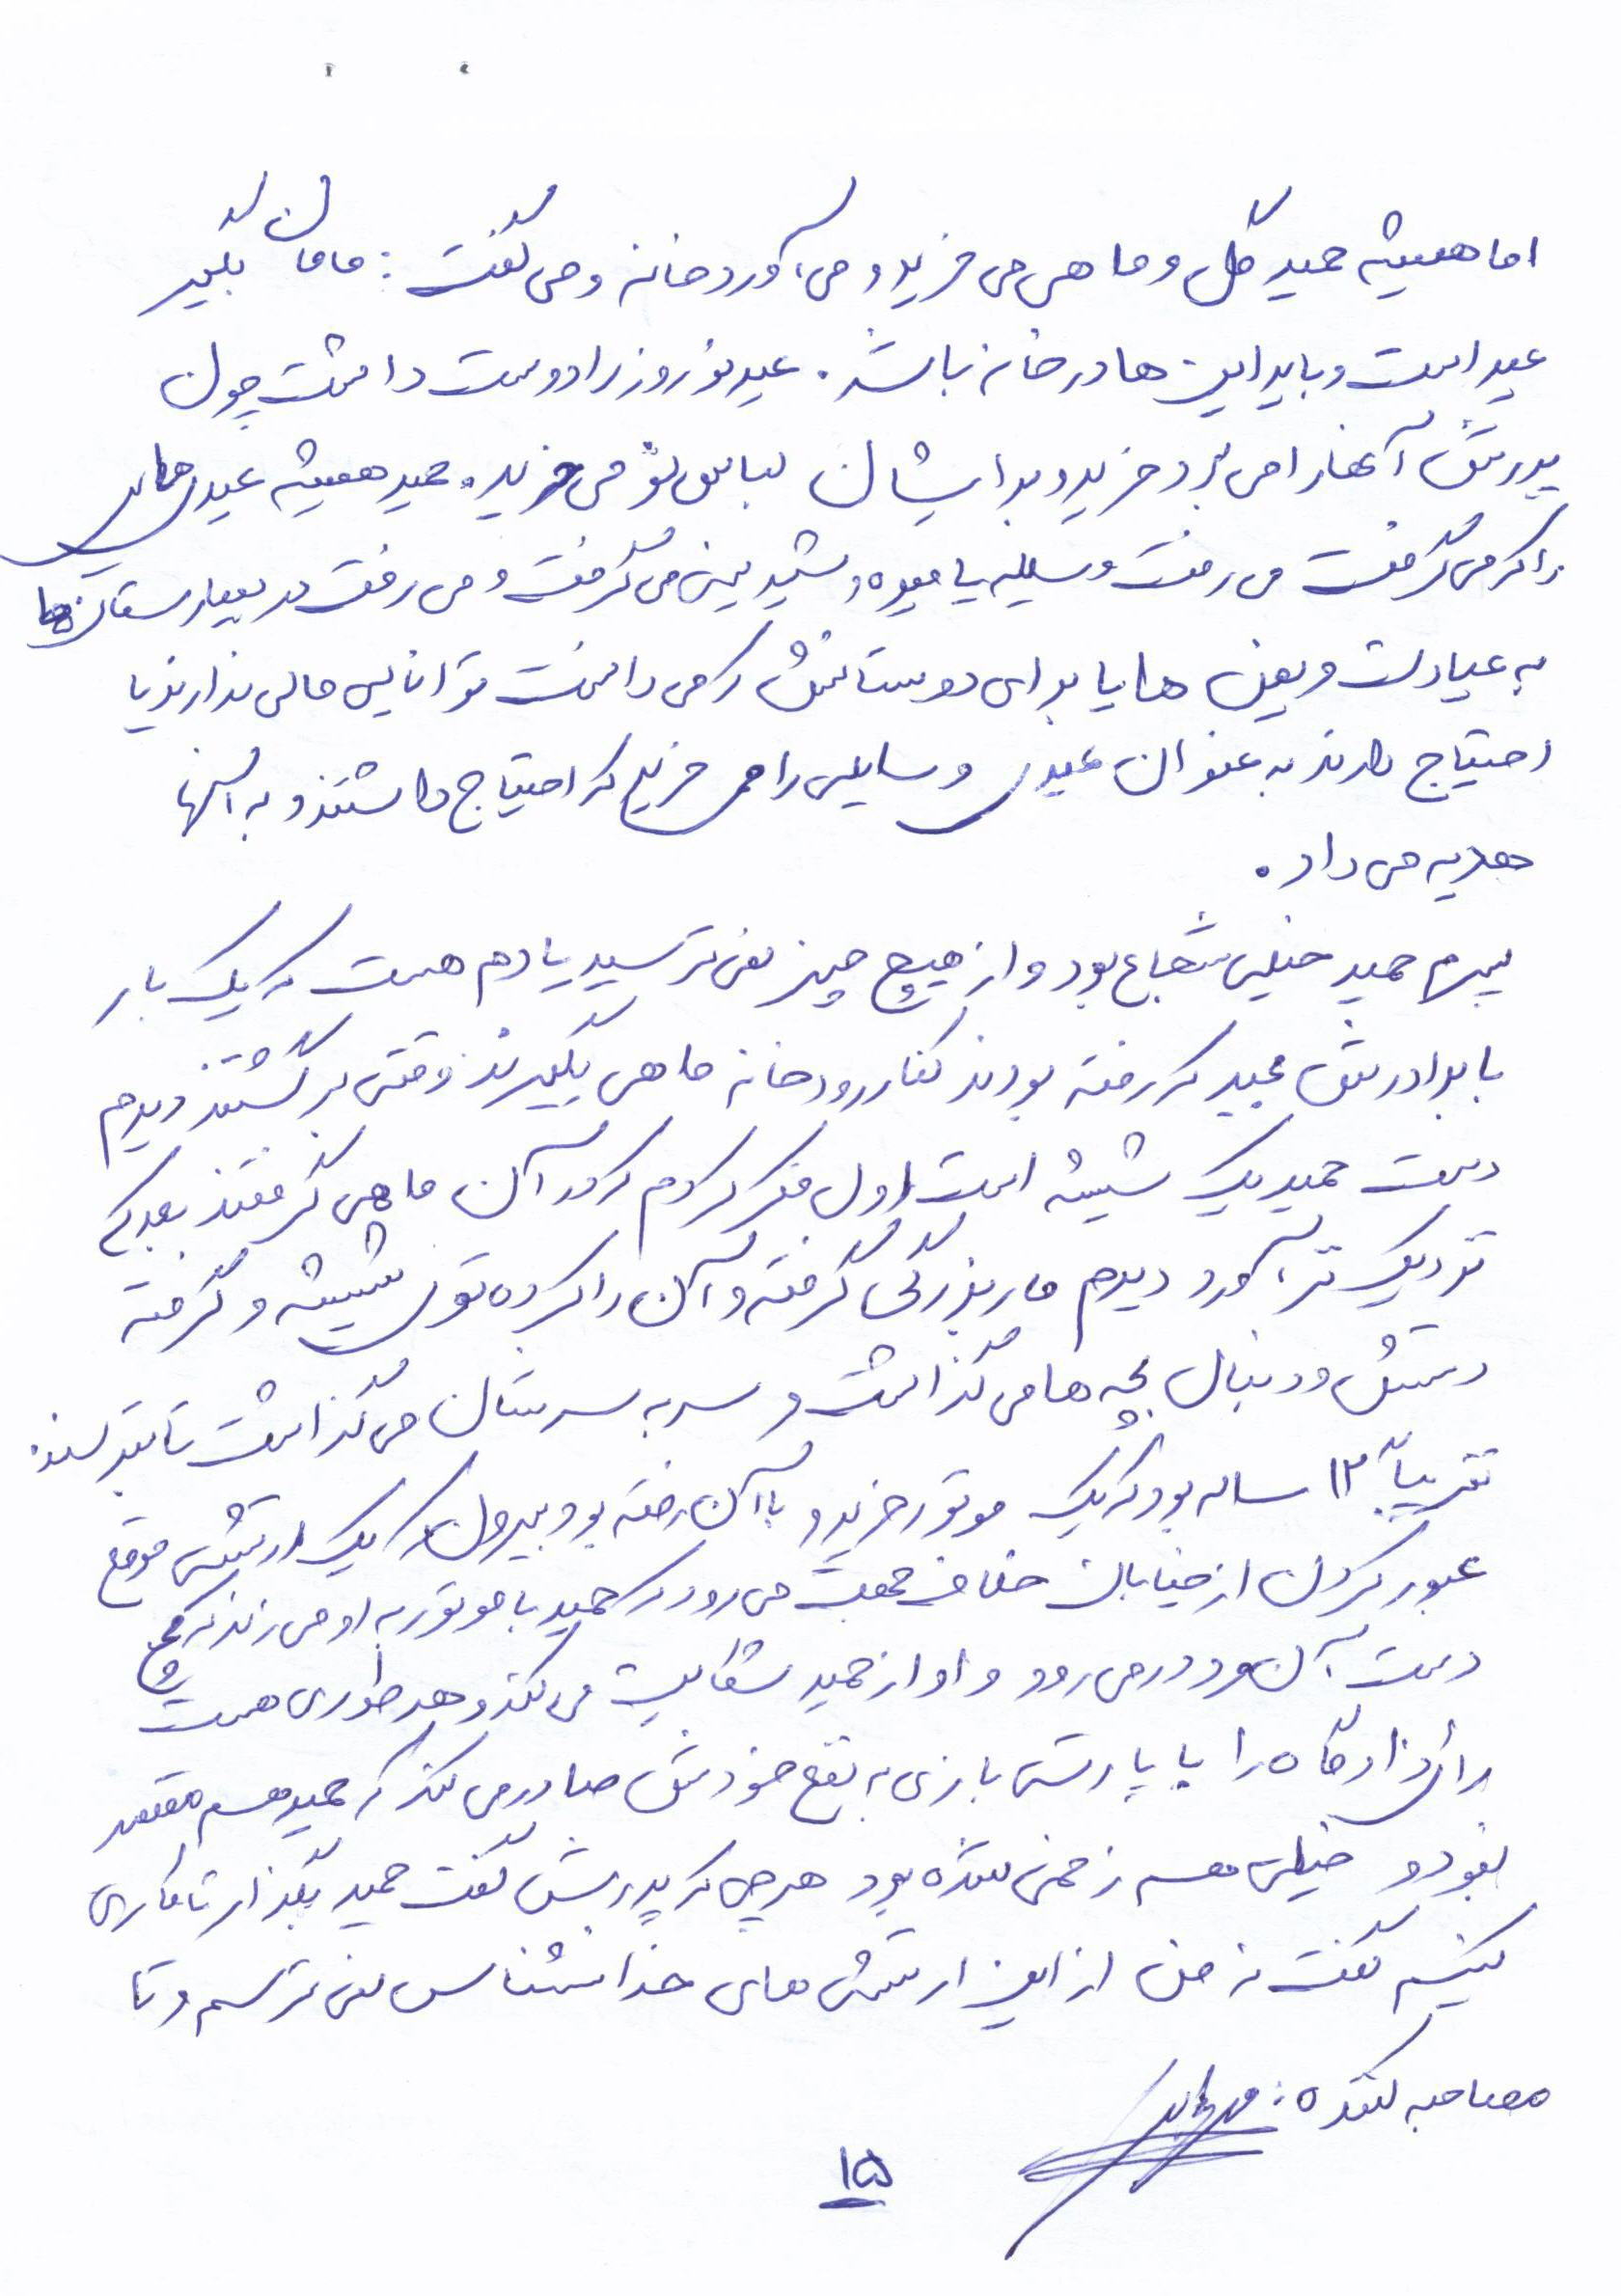 اما همیشه حمید گل و ماهی می خرید و می آورد خانه و می گفت : مامان بگیر
عید است و باید این ها در خانه باشد . عید نوروز را دوست داشت چون
پدرش آنها را می برد خرید و برایشان لباس نو می خرید . حمید همیشه عیدی هایی
را که می گرفت می رفت وسیله یا میوه و شیرینی می گرفت و می رفت در بیمارستان ها
به عیادت مریض ها یا برای دوستانش که می دانست توانایی مالی ندارند یا
احتیاج دارند به عنوان عیدی وسایلی را می خرید که احتیاج داشتند و به آنها
هدیه می داد .
پسرم حمید خیلی شجاع بود و از هیچ چیز نمی ترسید یادم هست که یک بار
با برادرش مجید که رفته بودند کنار رودخانه ماهی بگیرند وقتی برگشتند دیدم
دست حمید یک شیشه است اول فکر کردم که در آن ماهی گرفتند بعد که
نزدیک تر آورد دیدم مار بزرگی گرفته و آن را کرده توی شیشه و گرفته
دستش و دنبال بچه ها می گذاشت و سر به سرشان می گذاشت تا بترسند .
تقریباً ۱۳ ساله بود که یک موتور خرید و با آن رفته بود بیرون که یک ارتشی موقع
عبور کردن از خیابان خلاف جهت می رود که حمید با موتور به او می زند که مچ
دست آن مرد در می رود و او از حمید شکایت می کند و هر طوری هست
رأی دادگاه را با پارتی بازی به نفع خودش صادر می کند که حمید هم مقصر
نبود و خیلی هم زخمی شده بود هر چی که پدرش گفت حمید بگذار تا کاری
کنیم گفت نه من از این ارتشی های خدانشناس نمی ترسم و تا
مصاحبه کننده :
۱۵